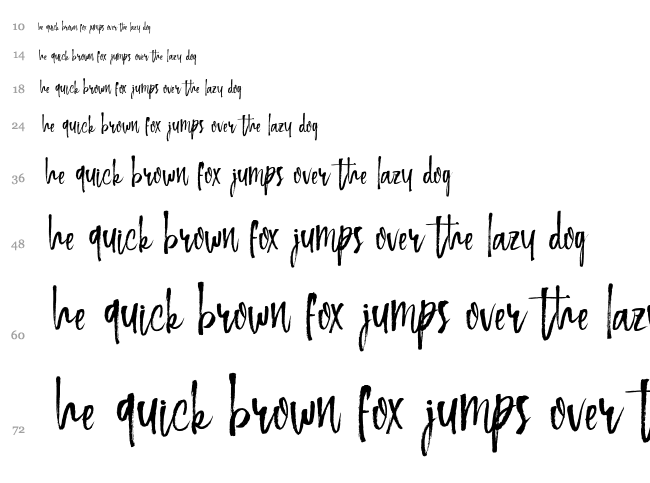 10 he quick brown fox jumps over the lazy dog
14 he quick brown fox jumps over the lazy dog
18 he quick brown fox jumps over the lazy dog
24 he quick brown fox jumps over the lazy dog
36 he quick brown fox jumps over the lazy dog
48 he quick brown fox jumps over the lazy dog
60 he quick brown fox jumps over the laz
72 he quick brown fox jumps over t